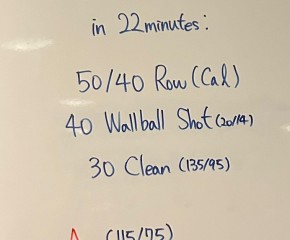 in 22minutes:
50/40 Row (Cal)
40 Wallball Shot (20/14)
30 Clean (135/95)
(115/75)